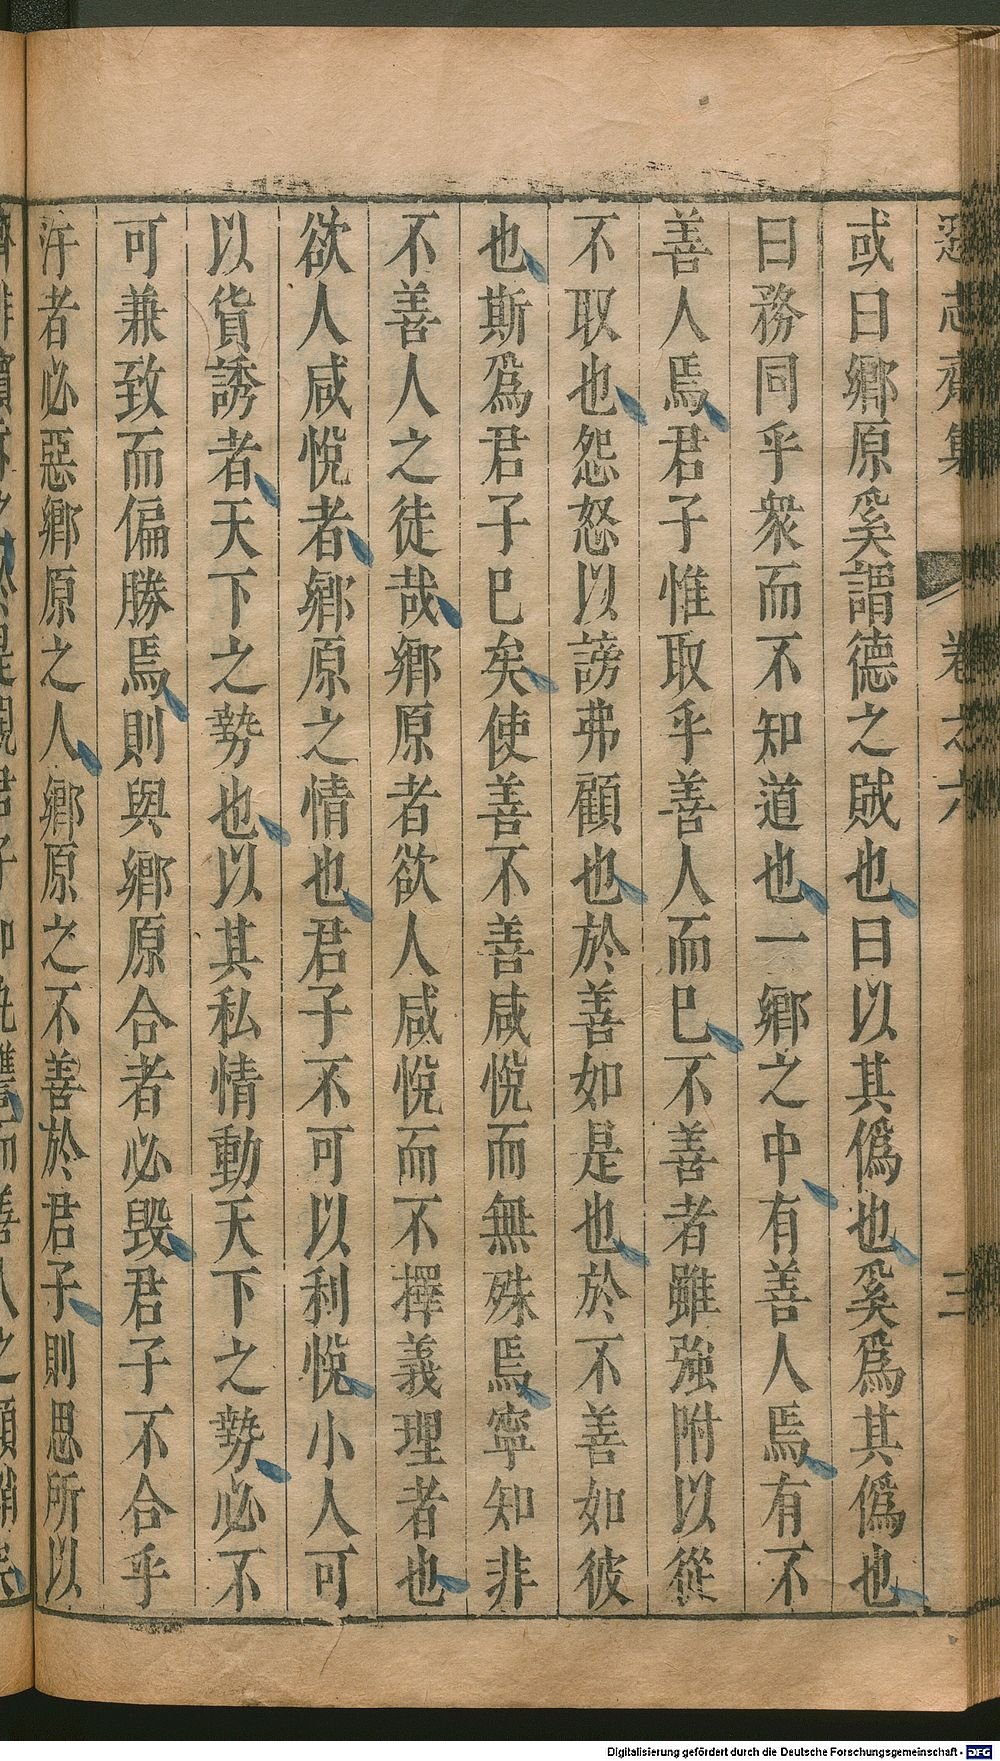 志齋集 卷之六 三
或曰鄉原奚謂德之賊也曰以其僞也奚爲其僞也
曰務同乎衆而不知道也一鄉之中有善人焉有不
善人焉君子惟取乎善人而已不善者雖強附以從
不取也怨怒以謗弗顧也於善如是也於不善如彼
也斯爲君子已矣使善不善咸悅而無殊焉寧知非
不善人之徒哉鄉原者欲人咸悅而不擇義理者也
欲人咸悅者鄉原之情也君子不可以利悅小人可
以貨誘者天下之勢也以其私情動天下之勢必不
可兼致而偏勝焉則與鄉原合者必毀君子不合乎
汙者必惡鄉原之人鄉原之不善於君子則思所以
Digitalisierung gefördert durch die Deutsche Forschungsgemeinschaft - DFG